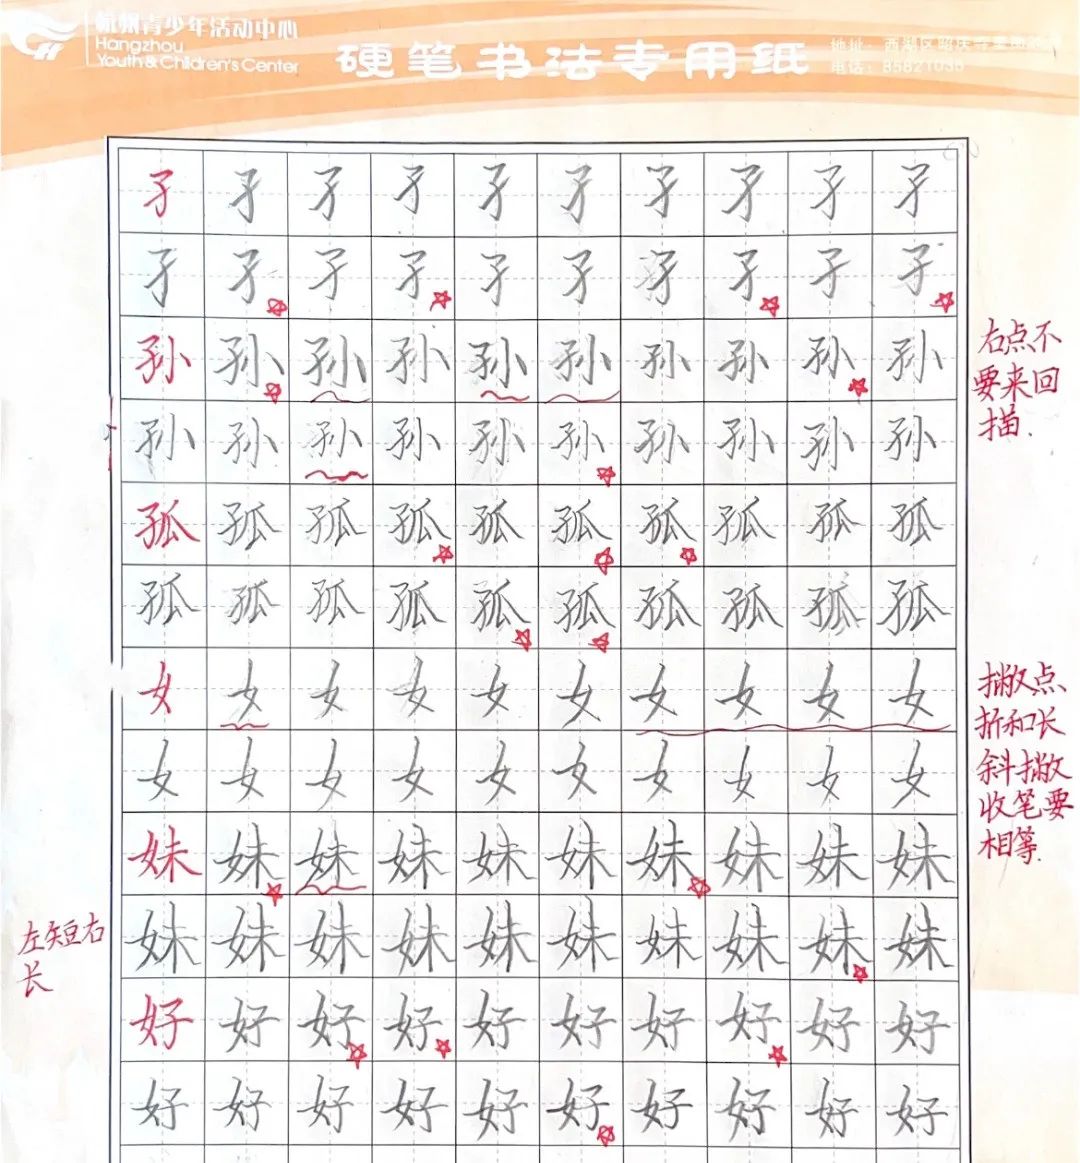 杭州青少年活动中心
Hangzhou
Youth & Children's Center
硬笔书法专用纸
地址：西湖区
电话：85821035
孑孑孑孑孑孑孑孑孑孑
孑孑孑孑孑孑孑孑孑孑
孙孙孙孙孙孙孙孙孙孙
孙孙孙孙孙孙孙孙孙孙
孤孤孤孤孤孤孤孤孤孤
孤孤孤孤孤孤孤孤孤孤
女女女女女女女女女女
女女女女女女女女女女
妹妹妹妹妹妹妹妹妹妹
妹妹妹妹妹妹妹妹妹妹
好好好好好好好好好好
好好好好好好好好好好
右点不
要来回
描.
撇点、
折和长
斜撇
收笔要
相等.
左短右
长